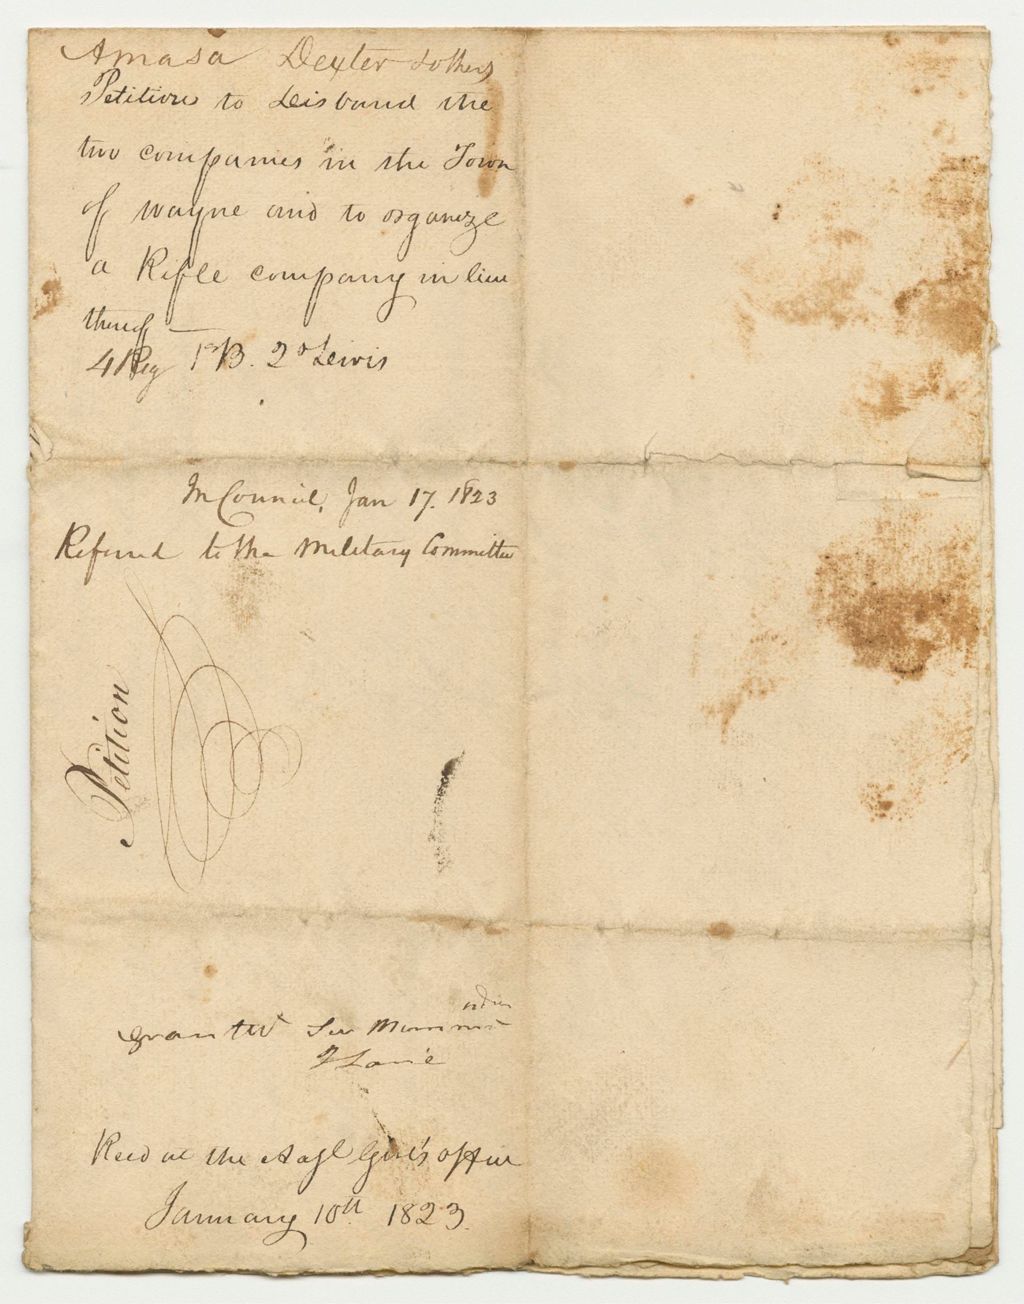 Amasa Dexter & others
Petition to Disband the
two companies in the Town
of Wayne and to organize
a Rifle company in lieu
thereof —
4 Reg 1st B. 2d Divis
In Council, Jan 17. 1823
Referred to the Military Committee
Petition
order
granted See
Recd at the Adjt Genl's office
January 10th 1823.